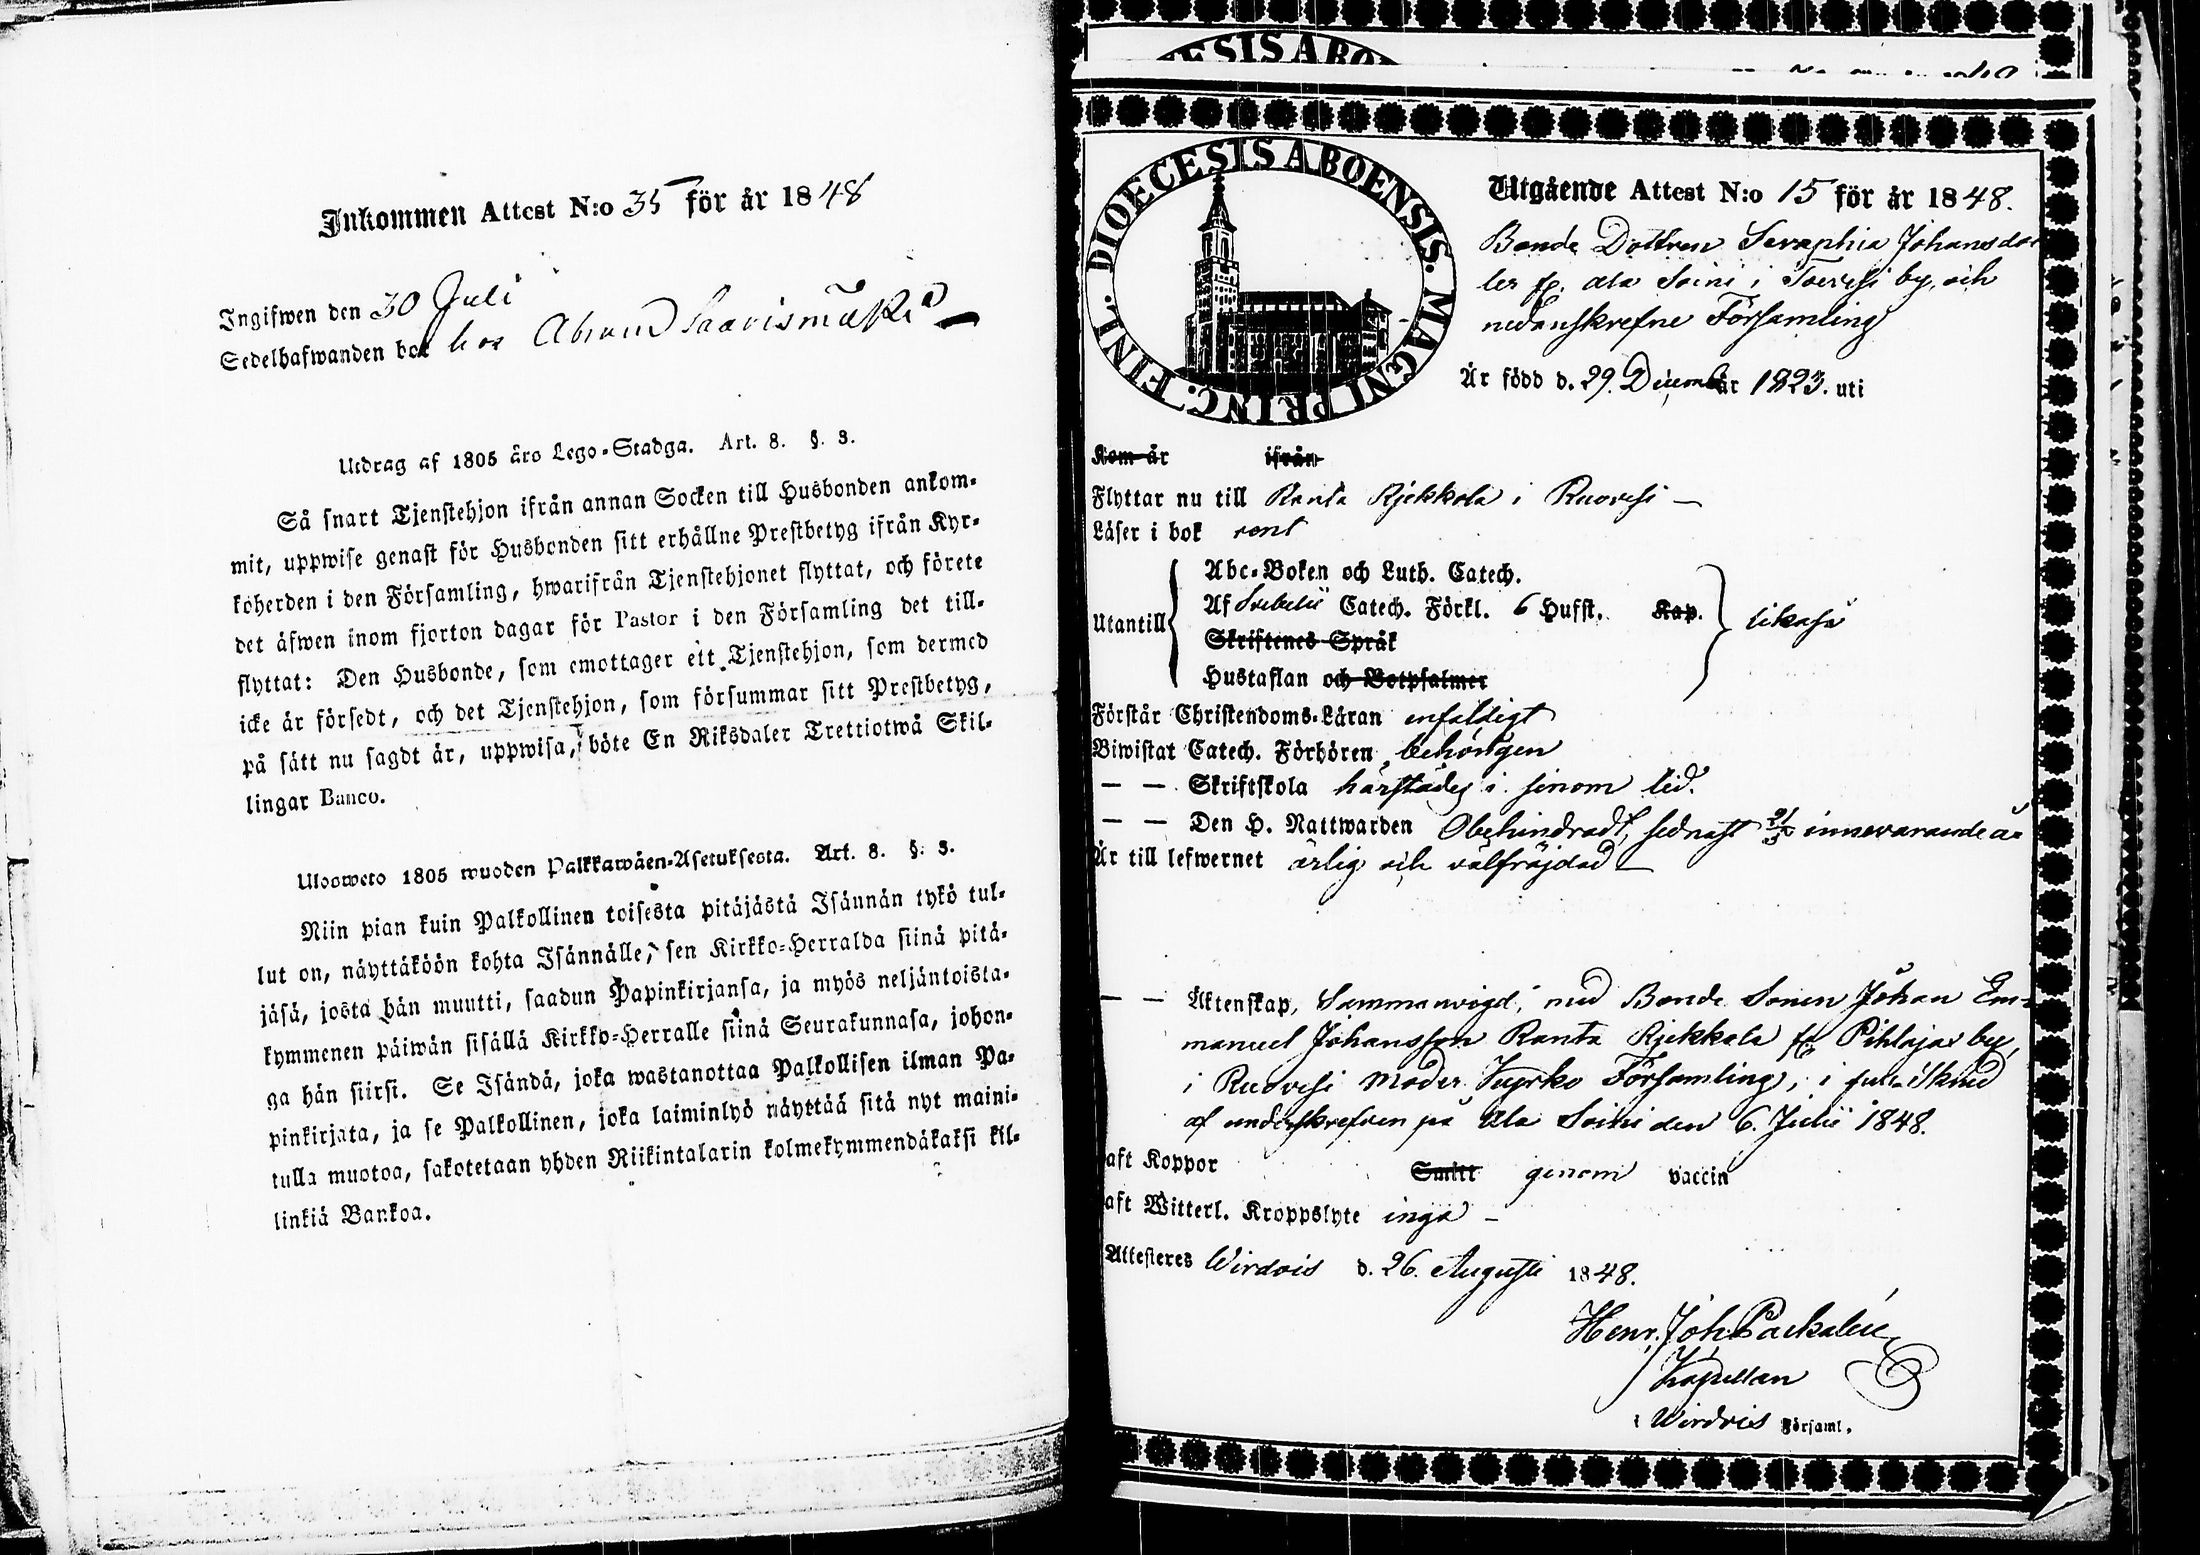 Inkommen Attest N:o 35 för år 1848
Ingifwen den 30 Juli
Sedelhafwanden bor hos Abram Saarismäki
Utdrag af 1805 års Lego-Stadga. Art. 8. §. 3.
Så snart Tjenstehjon ifrån annan Socken till Husbonden ankom-
mit, uppwise genast för Husbonden sitt erhållne Prestbetyg ifrån Kyr-
koherden i den Församling, hwarifrån Tjenstehjonet flyttat, och förete
det äfwen inom fjorton dagar för Pastor i den Församling det till-
flyttat: Den Husbonde, som emottager ett Tjenstehjon, som dermed
icke är försedt, och det Tjenstehjon, som försummar sitt Prestbetyg,
på sätt nu sagdt är, uppwisa, böte En Riksdaler Trettiotwå Skil-
lingar Banco.
Uloosweto 1805 wuoden Palkkawäen-Asetuksesta. Art. 8. §. 3.
Niin pian kuin Palkollinen toisesta pitäjästä Isännän tykö tul-
lut on, näyttäköön kohta Isännälle, sen Kirkko-Herralda siinä pitä-
jäsä, josta hän muutti, saadun Papinkirjansa, ja myös neljäntoista-
kymmenen päiwän sisällä Kirkko-Herralle siinä Seurakunnasa, johon-
ga hän siirsi. Se Isändä, joka wastanottaa Palkollisen ilman Pa-
pinkirjata, ja se Palkollinen, joka laiminlyö näyttää sitä nyt maini-
tulla muotoa, sakotetaan yhden Riikintalarin kolmekymmendäkaksi kil-
linkiä Bankoa.
DIOECESIS ABO
DIOECESIS ABOENSIS. MAGNI PRINC. FINL.
Utgående Attest N:o 15 för år 1848.
Bonde Dottren Seraphia Johansdot
ter fr. Ala Soini i Toivesi by, och
nedanskrefne Församling
Är född d. 29. Decemb år 1823. uti
Kom år ifrån
Flyttar nu till Ranta Rjekkola i Ruovesi —
Läser i bok rent
Abc-Boken och Luth. Catech.
Af Svebelii Catech. Förkl. 6 Hufst. Kap.
Utantill likaså
Skriftenes Språk
Hustaflan och Botpsalmer
Förstår Christendoms-Läran enfaldigt
Biwistat Catech. Förhören behörigen
— — Skriftskola härstädes i sinom tid.
— — Den H. Nattwarden Obehindradt, sednast innevarande år
Är till lefwernet ärlig och välfräjdad —
— — Äktenskap, Sammanvigd, med Bonde Sonen Johan Em-
manuel Johansson Ranta Rjekkala fr. Pihlajas by,
i Ruovesi Moder Kyrko Församling, i
af underskrefven på Ala Soini den 6. Julii 1848.
aft Koppor Smitt genom vaccin
aft Witterl. Kroppslyte inga —
Attesteres Wirdois d. 26. Augusti 1848.
Henr. Joh. Packalén
Kapellan
i Wirdois Församl.